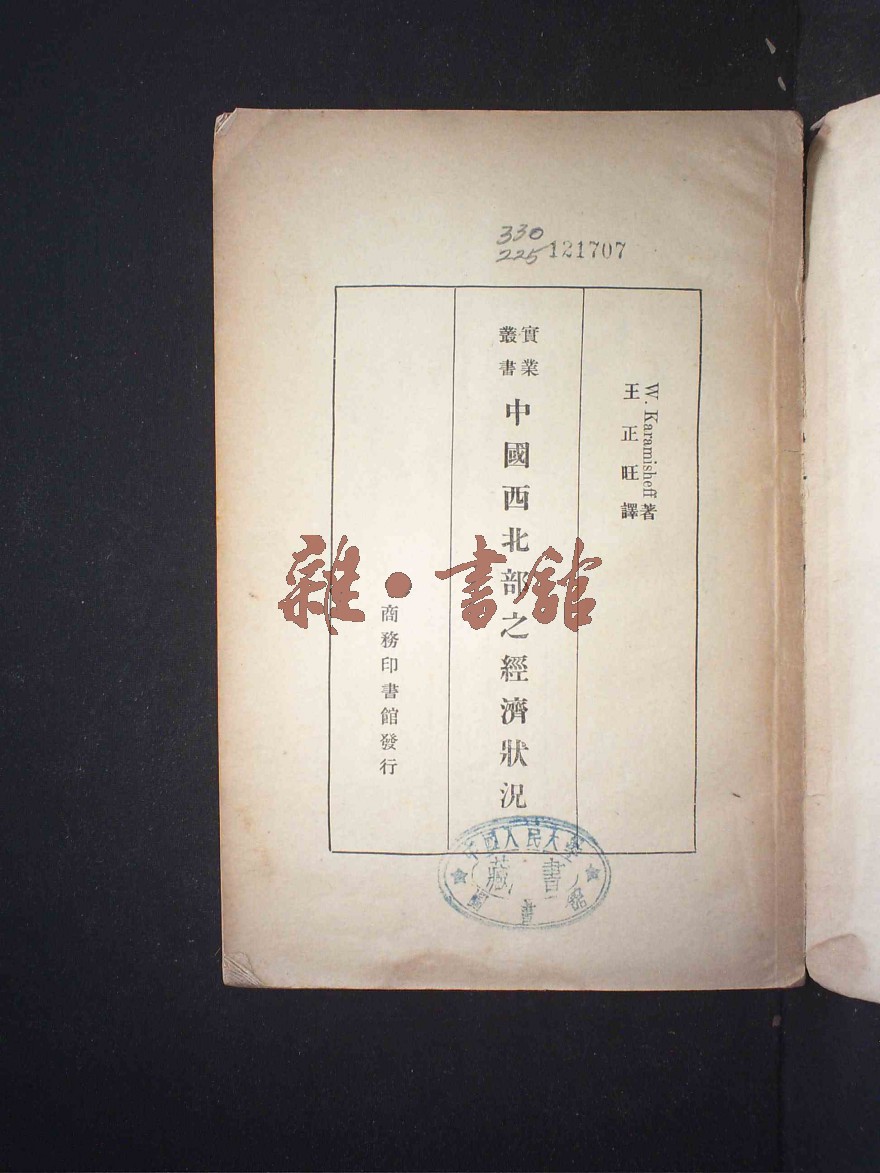 330
225 121707
W. Karamisheff 著
王正旺譯
實業
叢書
中國西北部之經濟狀況
商務印書館發行
雜·書館
中國人民大學
藏書
圖書館